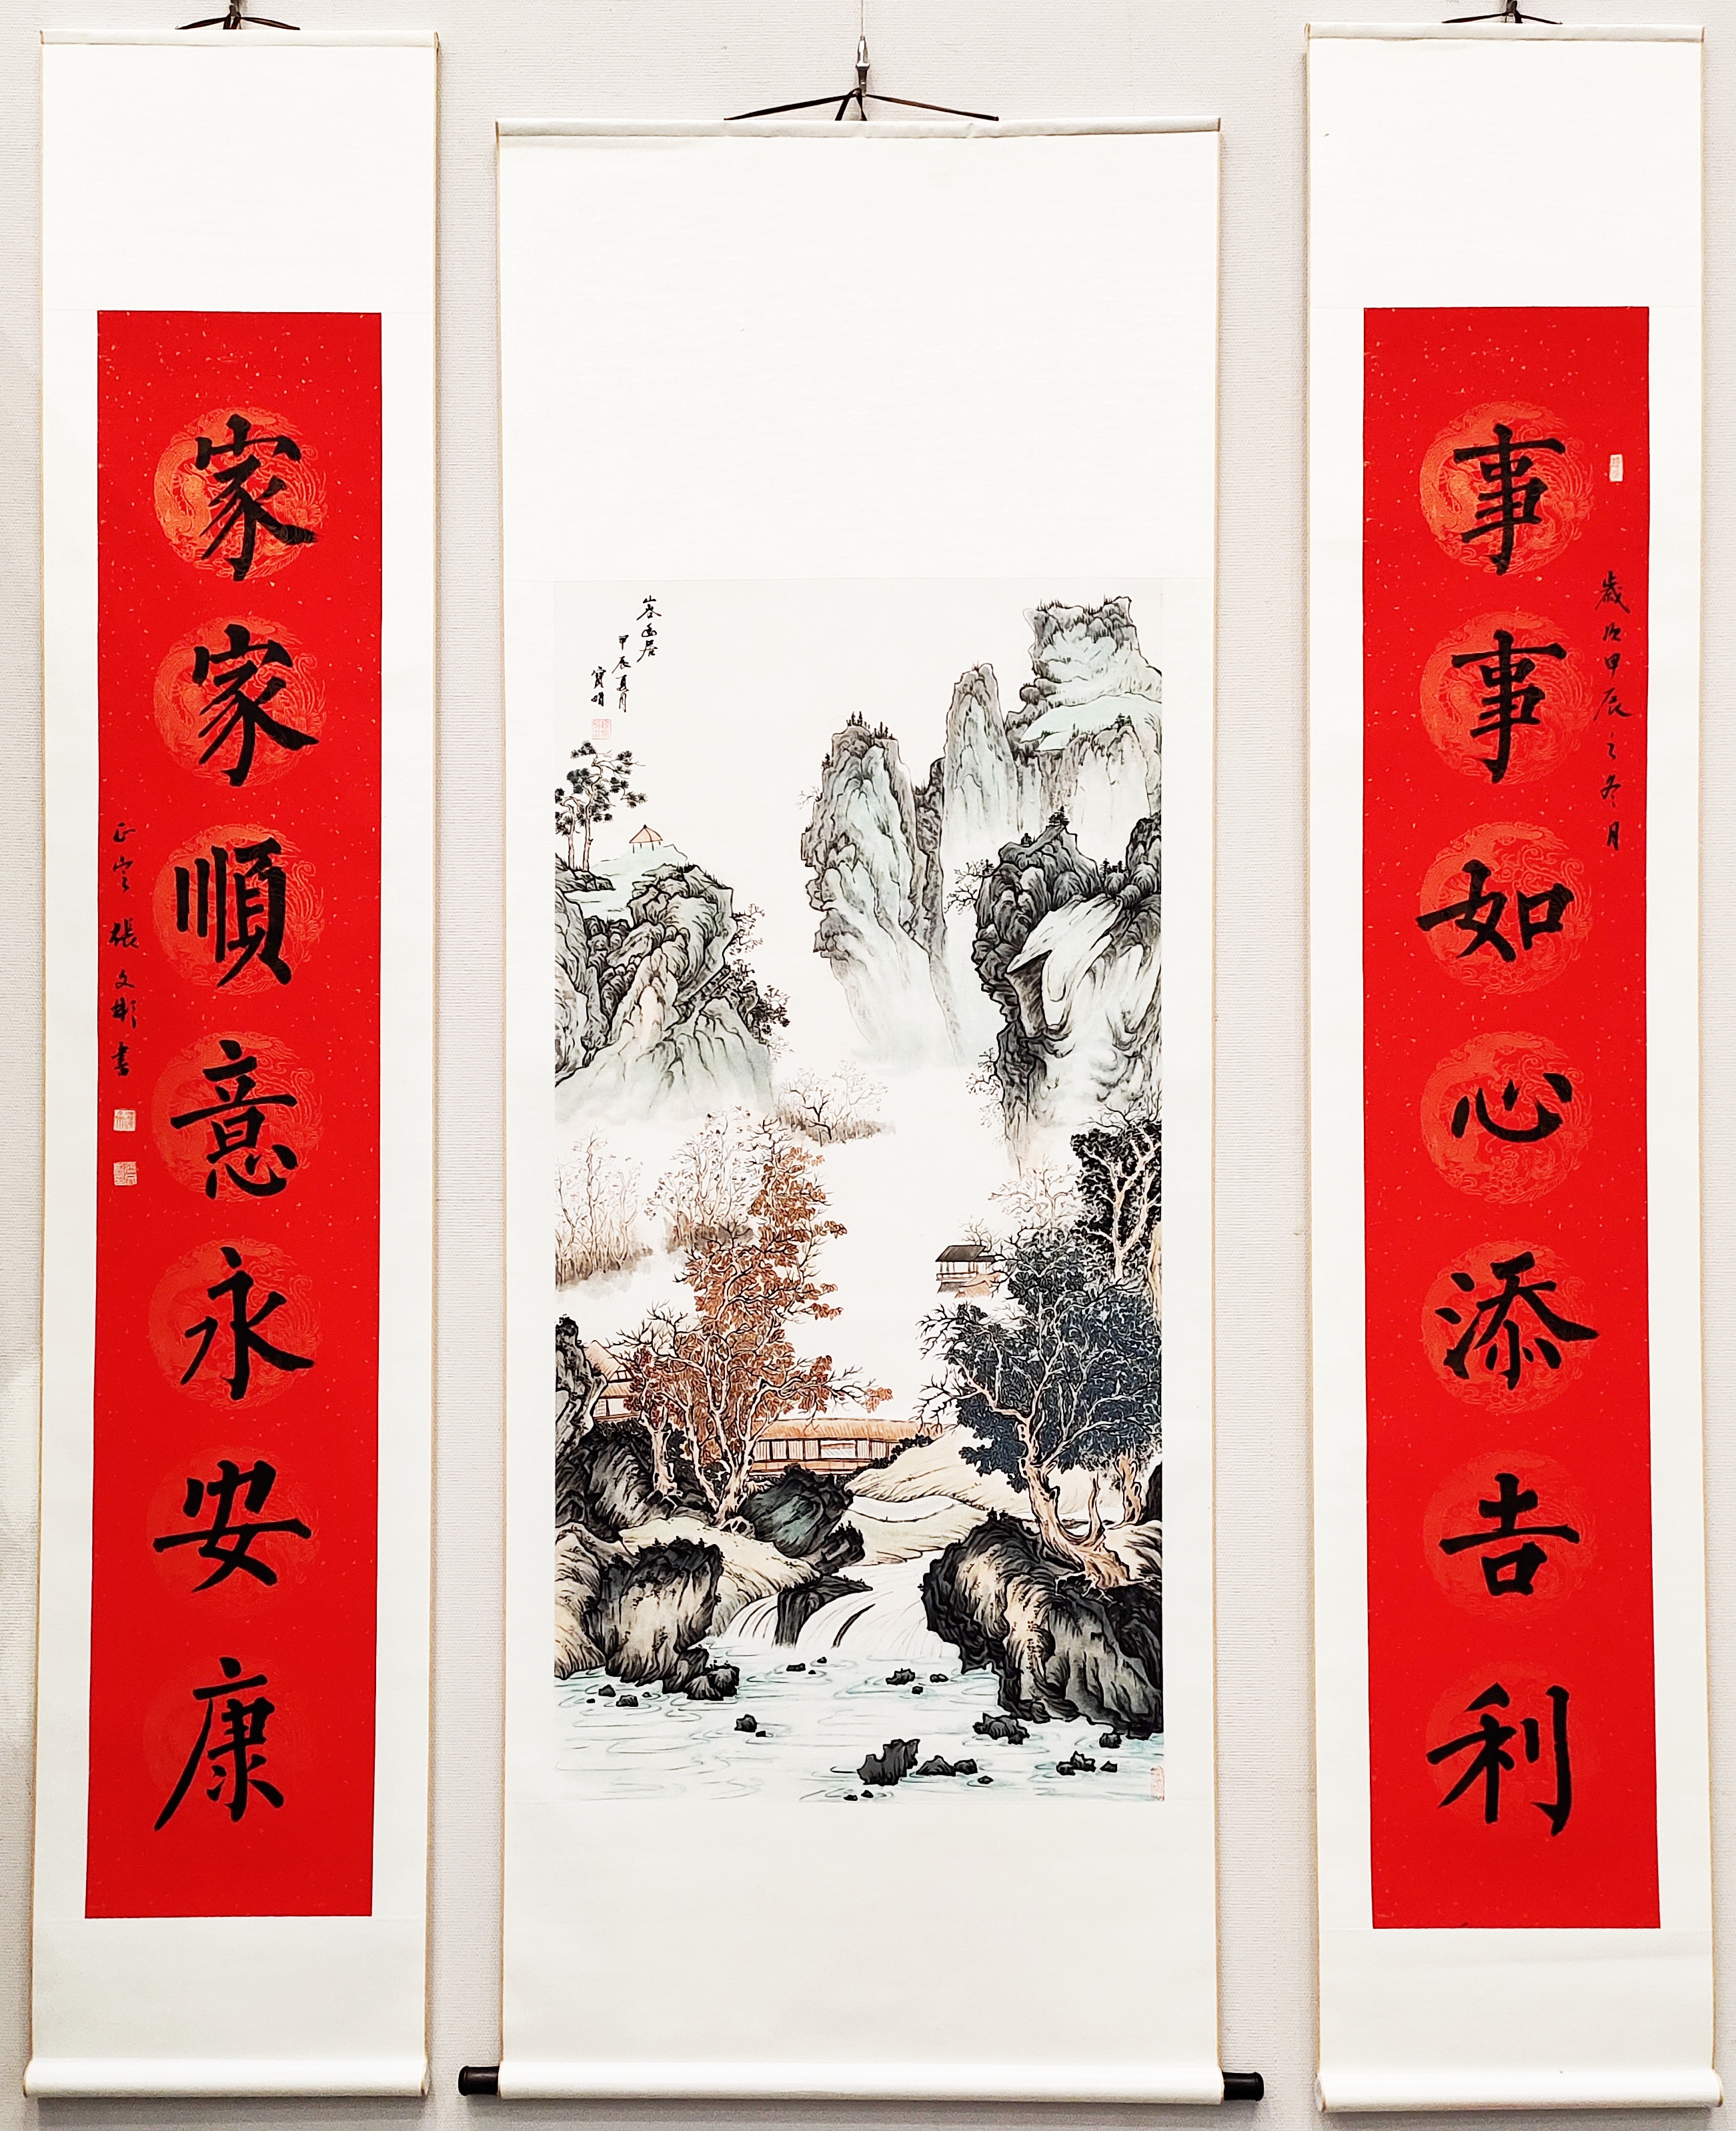 事事如心添吉利
歲次甲辰之冬月
山居
甲辰夏月
寶明
家家順意永安康
正定張文彬書